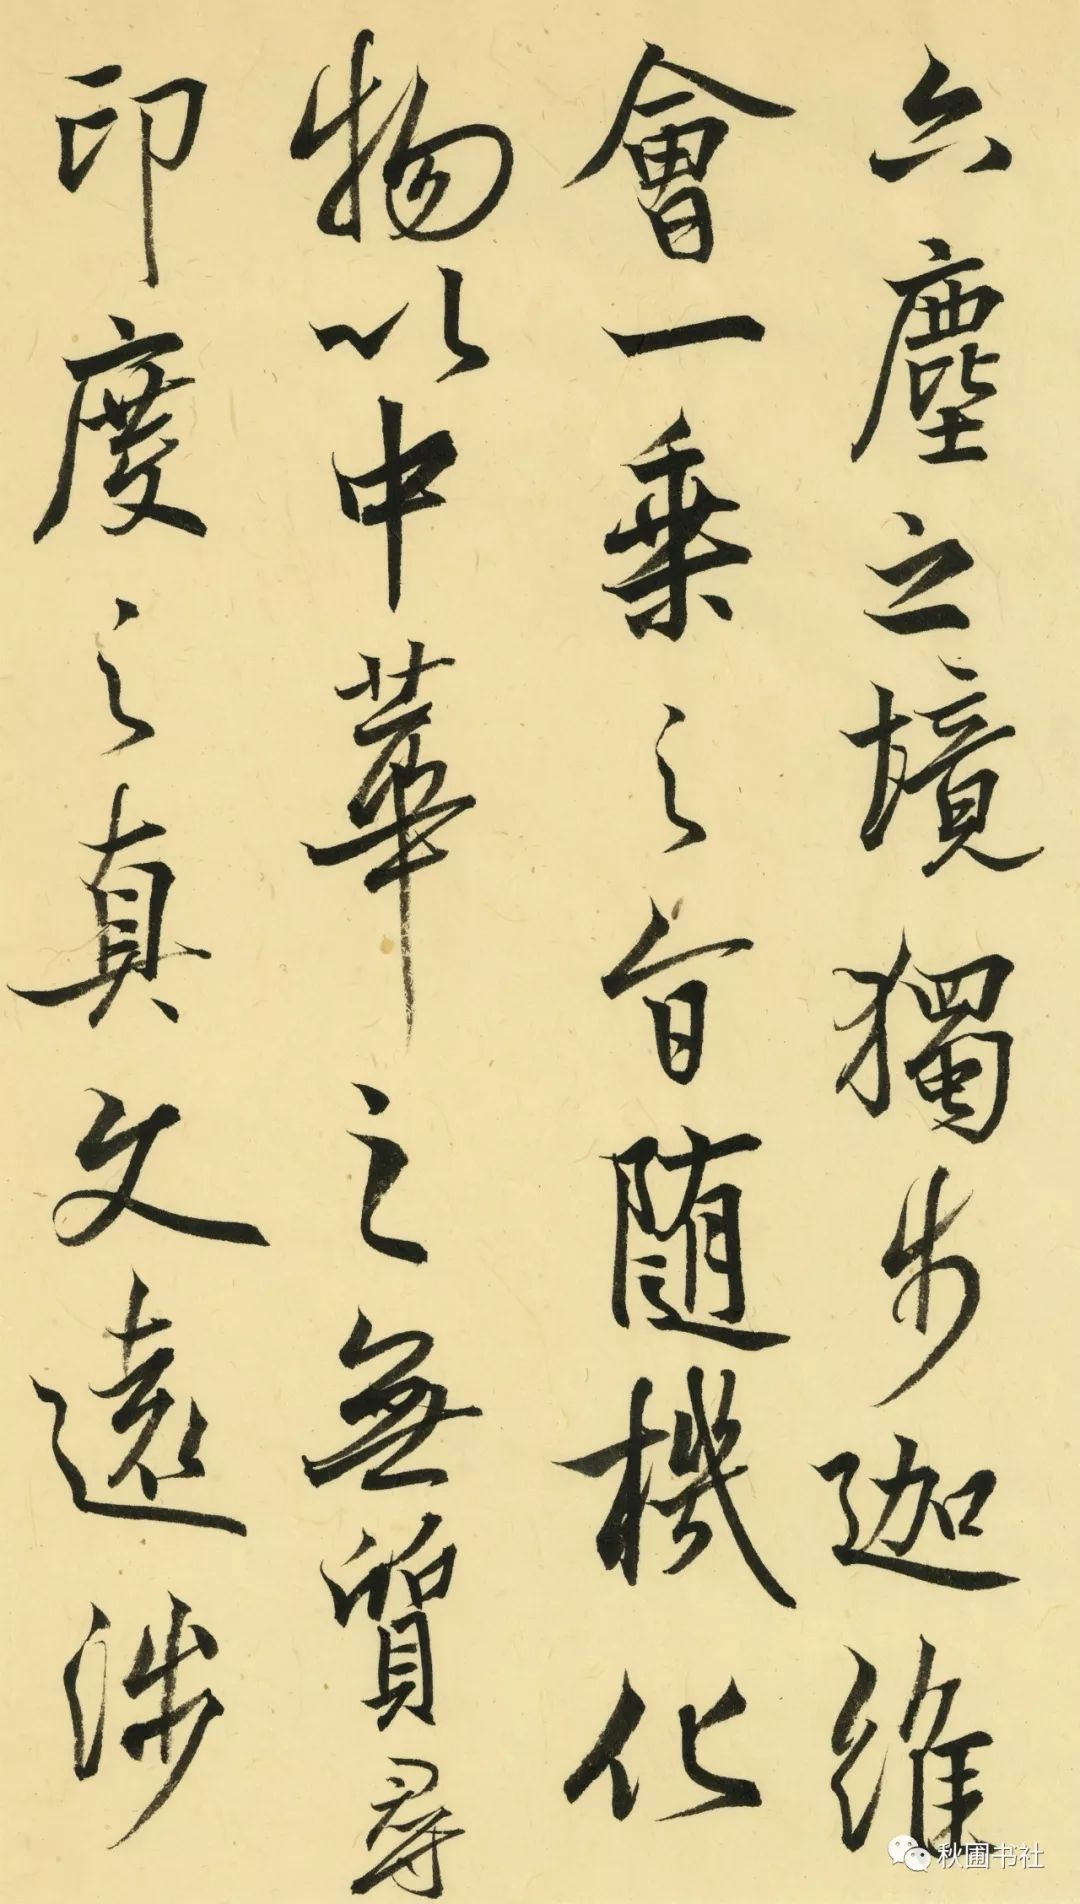 六塵之境獨步迦維
會一乗之旨随機化
物以中華之無質尋
印度之真文遠涉
秋圃书社